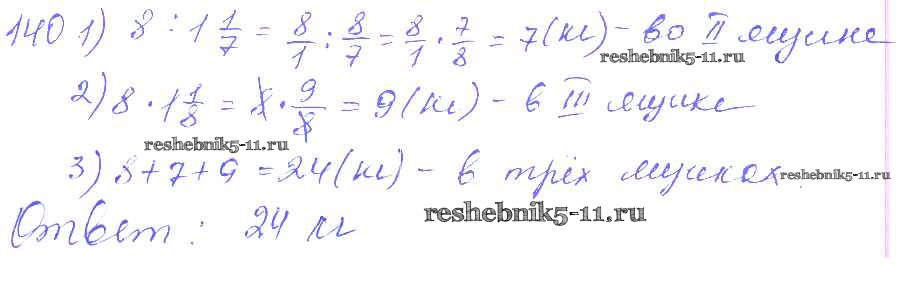 140 1) 8 : 1 1/7 = 8/1 : 8/7 = 8/1 · 7/8 = 7 (кг) – во II ящике
reshebnik5-11.ru
2) 8 · 1 1/8 = 8 · 9/8 = 9 (кг) – в III ящике
reshebnik5-11.ru
3) 8 + 7 + 9 = 24 (кг) – в трёх ящиках
reshebnik5-11.ru
Ответ: 24 кг
reshebnik5-11.ru